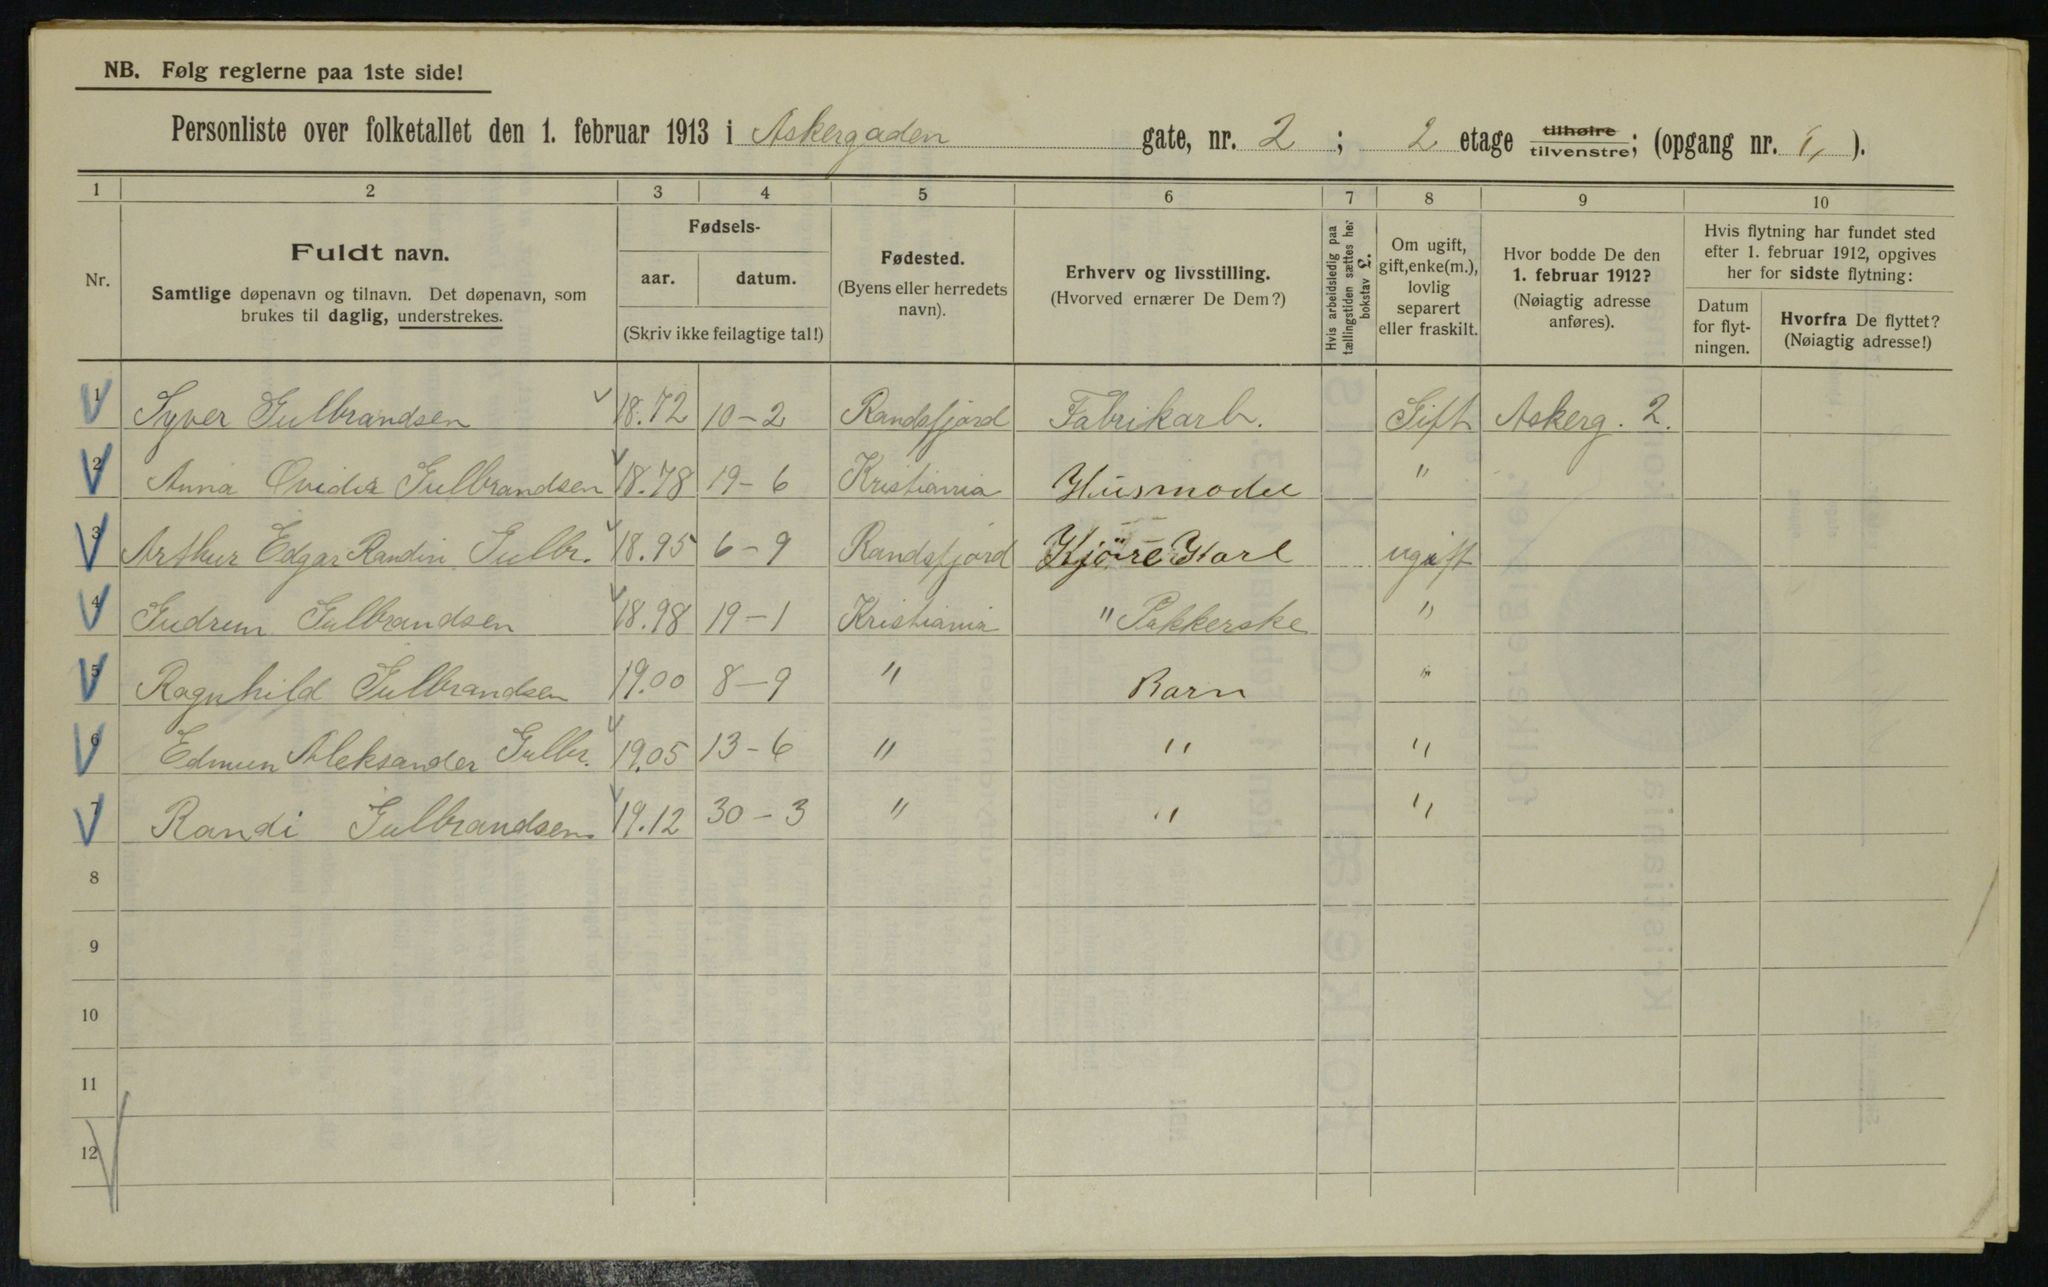 NB. Følg reglerne paa 1ste side!
Personliste over folketallet den 1. februar 1913 i Askergaden gate, nr. 2 ; 2 etage tilhøire tilvenstre; (opgang nr. 1, ).
1 2 3 4 5 6 7 8 9 10
Nr.
Fuldt navn.
Samtlige døpenavn og tilnavn. Det døpenavn, som
brukes til daglig, understrekes.
Fødsels-
aar. datum.
(Skriv ikke feilagtige tal!)
Fødested.
(Byens eller herredets
navn).
Erhverv og livsstilling.
(Hvorved ernærer De Dem?)
Hvis arbeidsledig paa
tællingstiden sættes her
bokstav L.
Om ugift,
gift, enke(m.),
lovlig
separert
eller fraskilt.
Hvor bodde De den
1. februar 1912?
(Nøiagtig adresse
anføres).
Hvis flytning har fundet sted
efter 1. februar 1912, opgives
her for sidste flytning:
Datum
for flyt-
ningen.
Hvorfra De flyttet?
(Nøiagtig adresse!)
1 Syver Gulbrandsen 18.72 10-2 Randsfjord Fabrikarb. Gift Askerg. 2.
2 Anna Ovidia Gulbrandsen 18.78 19-6 Kristiania Husmoder "
3 Arthur Edgar Randin Gulbr. 18.95 6-9 Randsfjord Kjöre Karl ugift
4 Gudrun Gulbrandsen 18.98 19-1 Kristiania " Pakkerske "
5 Ragnhild Gulbrandsen 19.00 8-9 " Barn "
6 Edmun Aleksander Gulbr. 19.05 13-6 " " "
7 Randi Gulbrandsen 19.12 30-3 " " "
8
9
10
11
12